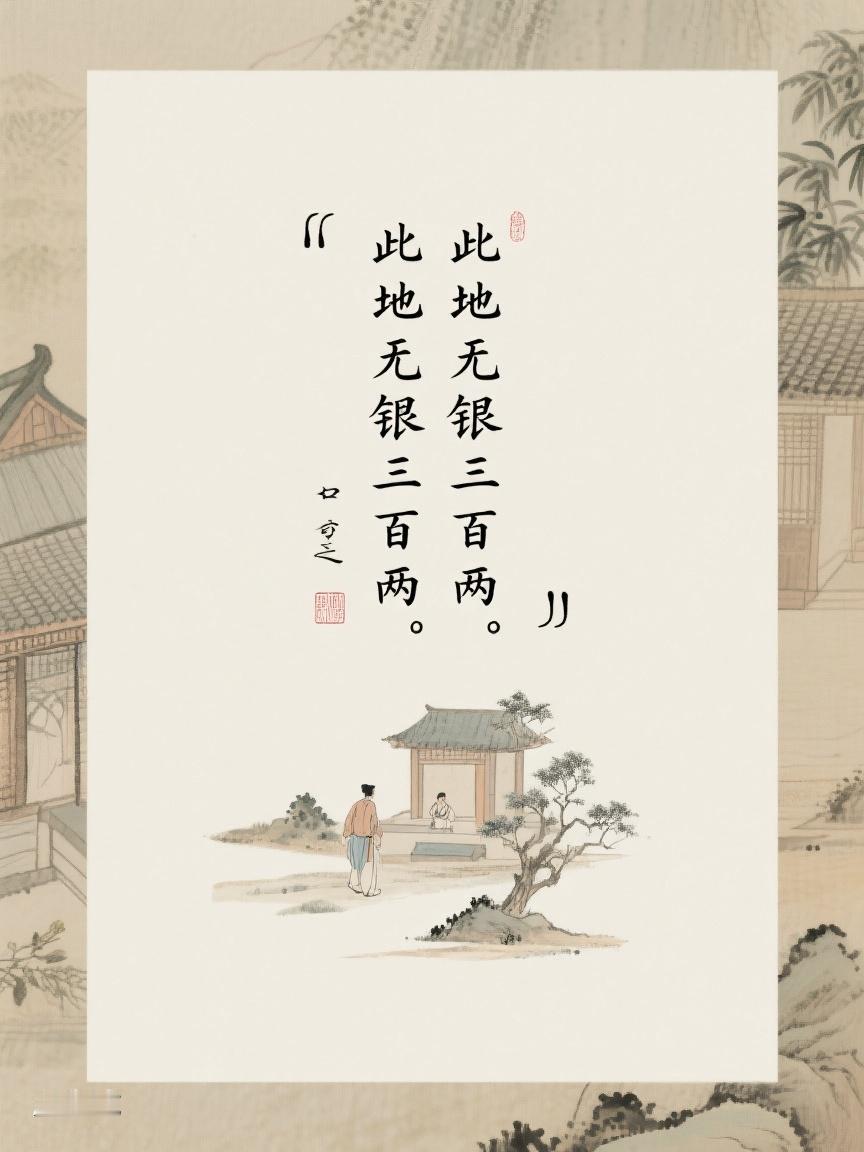 “此地无银三百两。
此地无银三百两。”